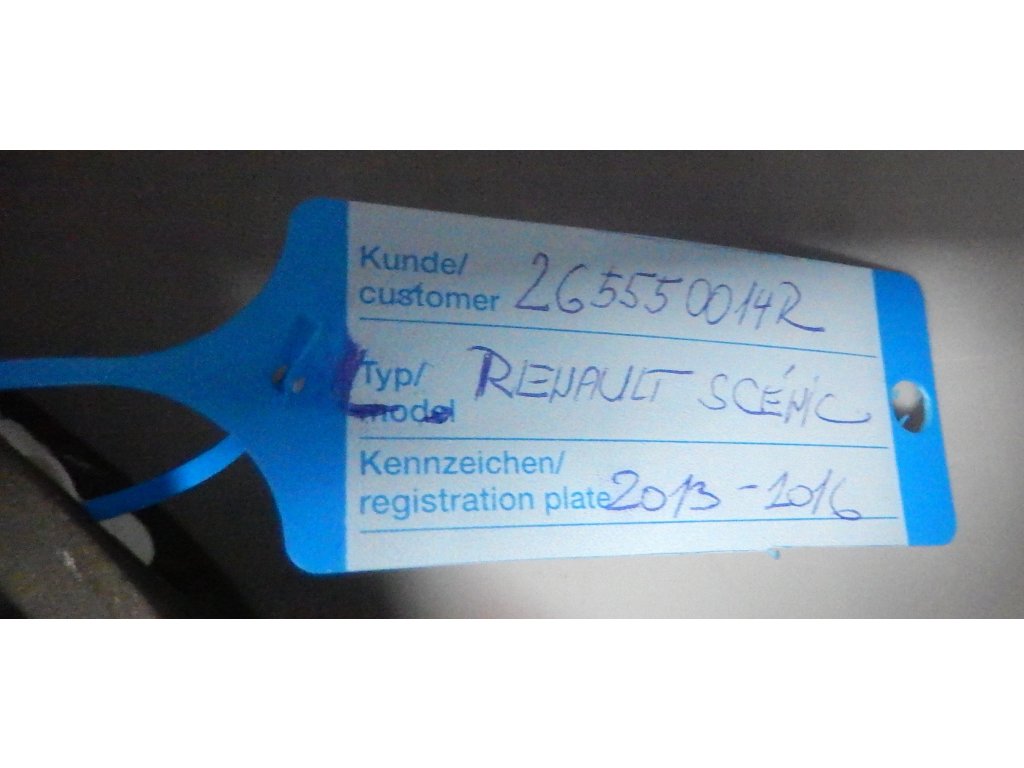 Kunde/
customer 265550014R
Typ/ RENAULT SCÉNIC
model
Kennzeichen/
registration plate 2013-2016